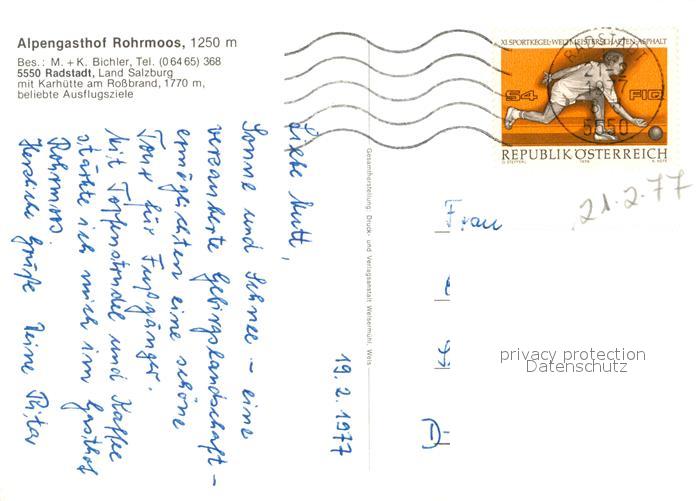 Alpengasthof Rohrmoos, 1250 m
Bes.: M. + K. Bichler, Tel. (0 64 65) 368
5550 Radstadt, Land Salzburg
mit Karhütte am Roßbrand, 1770 m,
beliebte Ausflugsziele
XI SPORTKEGEL-WELTMEISTERSCHAFTEN-ASPHALT
S4
FIQ
REPUBLIK ÖSTERREICH
RADSTADT
5550
21.2.77
19.2.1977
Liebe Mutti,
Sonne und Schnee – eine
verzauberte Gebirgslandschaft –
ermöglichten eine schöne
Tour für Fußgänger.
Mit Topfenstrudel und Kaffee
stärkte ich mich im Gasthof
Rohrmoos.
Herzliche Grüße Deine Rita
Gesamtherstellung: Druck- und Verlagsanstalt Welsermühl, Wels
Frau
D
privacy protection
Datenschutz